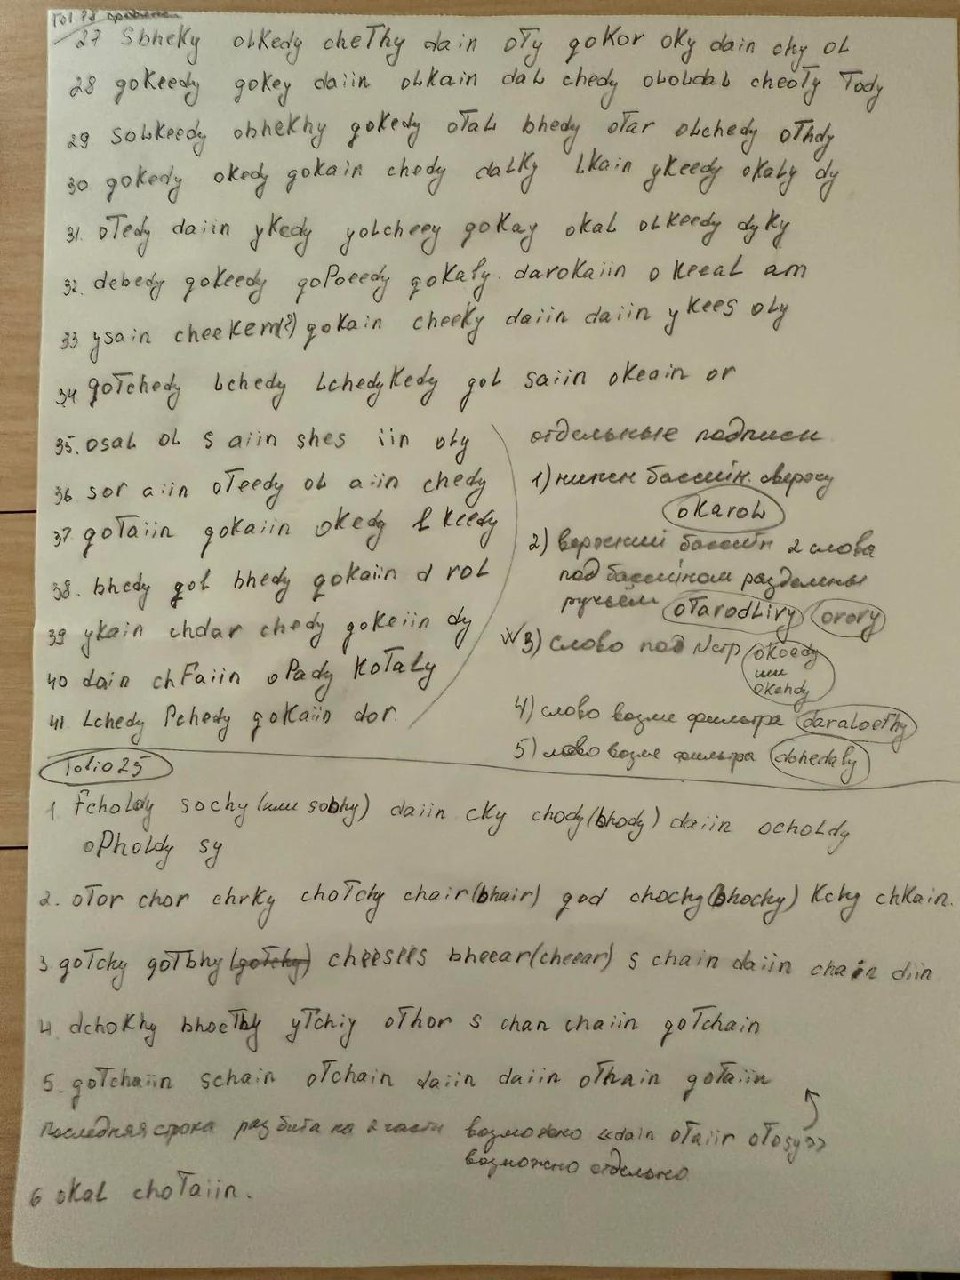 27 Sbheky oLKedy cheThy dain oTy goKor oKy dain chy oL
28 goKeedy goKey daiin oLKain daL chedy oLoLdaL cheoTy Tody
29 SoLKeedy obheKhy goKedy oTaL bhedy oTar oLchedy oThdy
30 goKedy oKedy goKain chedy daLKy LKain yKeedy oKaLy dy
31. oTedy daiin yKedy yoLcheey goKay oKaL oLKeedy dyKy
32. debedy goKeedy goPoeedy goKaLy. daroKaiin oKeeaL am
33 ysain cheeKem(?) goKain cheeKy daiin daiin yKees oLy
34 goTchedy Lchedy LchedyKedy goL saiin oKeain or
35. osaL oL s aiin shes iin oLy
36 sor aiin oTeedy oL aiin chedy
37. goTaiin goKaiin oKedy LKeedy
38. bhedy goL bhedy goKaiin d roL
39 yKain chdar chedy goKeiin dy
40 dain chFaiin oPady KoTaLy
41 Lchedy Pchedy goKaiin dor
отдельные подписи
1) нижн бассейн. сверху
oKaroL
2) верхний бассейн 2 слова
под бассейном разделены
ручьём oTarodLiry orory
3) слово под
oKoedy
или
oKehdy
4) слово возле фильтра daraLoeThy
5) слово возле фильтра obhedaLy
folio 25
1. FchoLdy sochy (или sobhy) daiin cKy chody (bhody) daiin ochoLdy
oPhoLdy sy
2. oTor chor chrKy choTchy chair (bhair) god chochy (bhochy) Kchy chKain.
3 goTchy goTbhy (goTchy) cheesees bheear (cheear) s chain daiin chain diin
4. dchoKhy bhoeThy yTchiy oThor s chan chaiin goTchain
5. goTchaiin schain oTchain daiin daiin oThain goTaiin
последняя строка разбита на 2 части возможно «dain oTaiir oTosy»
возможно отдельно
6 oKaL choTaiin.